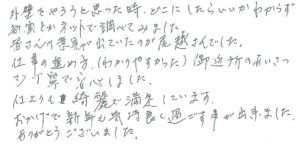 外壁をやろうと思った時、どこにしたらいいかわからず
初めネットで調べてみました
皆さんの意見が出ていたのが尾越さんでした。
仕事の進め方(わかりやすかった)御近所のあいさつ
も丁寧で安心しました。
仕上りも綺麗で満足しています。
おかげで新年も気持良く過ごす事が出来ました。
ありがとうございました。